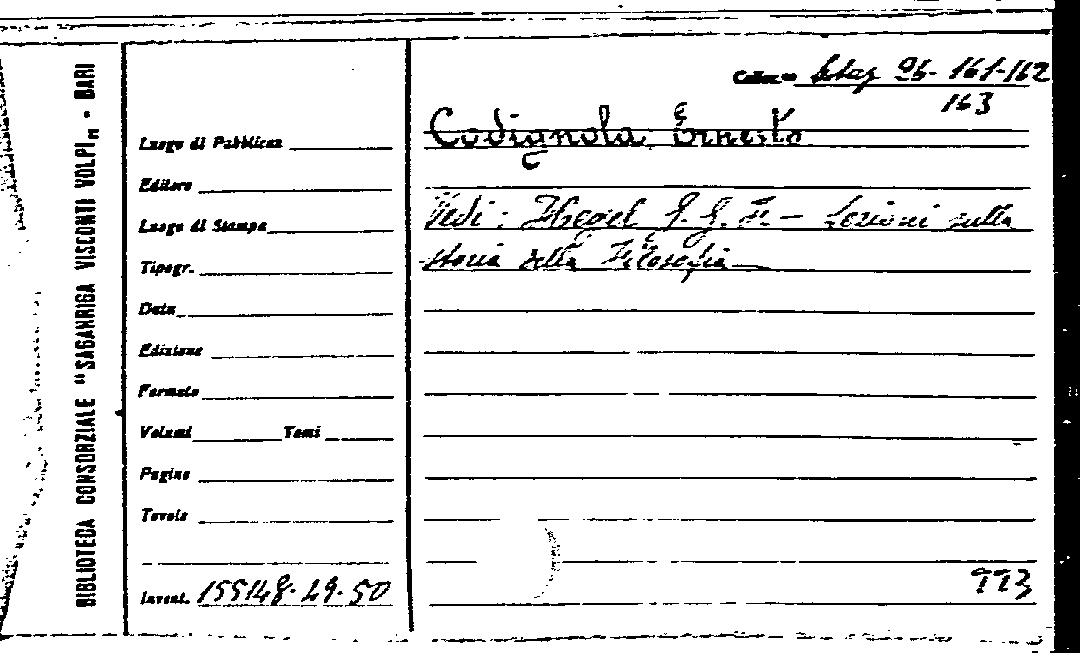 BIBLIOTECA CONSORZIALE "SAGARRIGA VISCONTI VOLPI" - BARI
Colloc.ne 96-161-162
163
Codignola Ernesto
Vedi: Hegel G. G. F. - Lezioni sulla
storia della Filosofia
Luogo di Pubblicaz
Editore
Luogo di Stampa
Tipogr.
Data
Edizione
Formato
Volumi Tomi
Pagine
Tavole
Invent. 155148-49-50
993